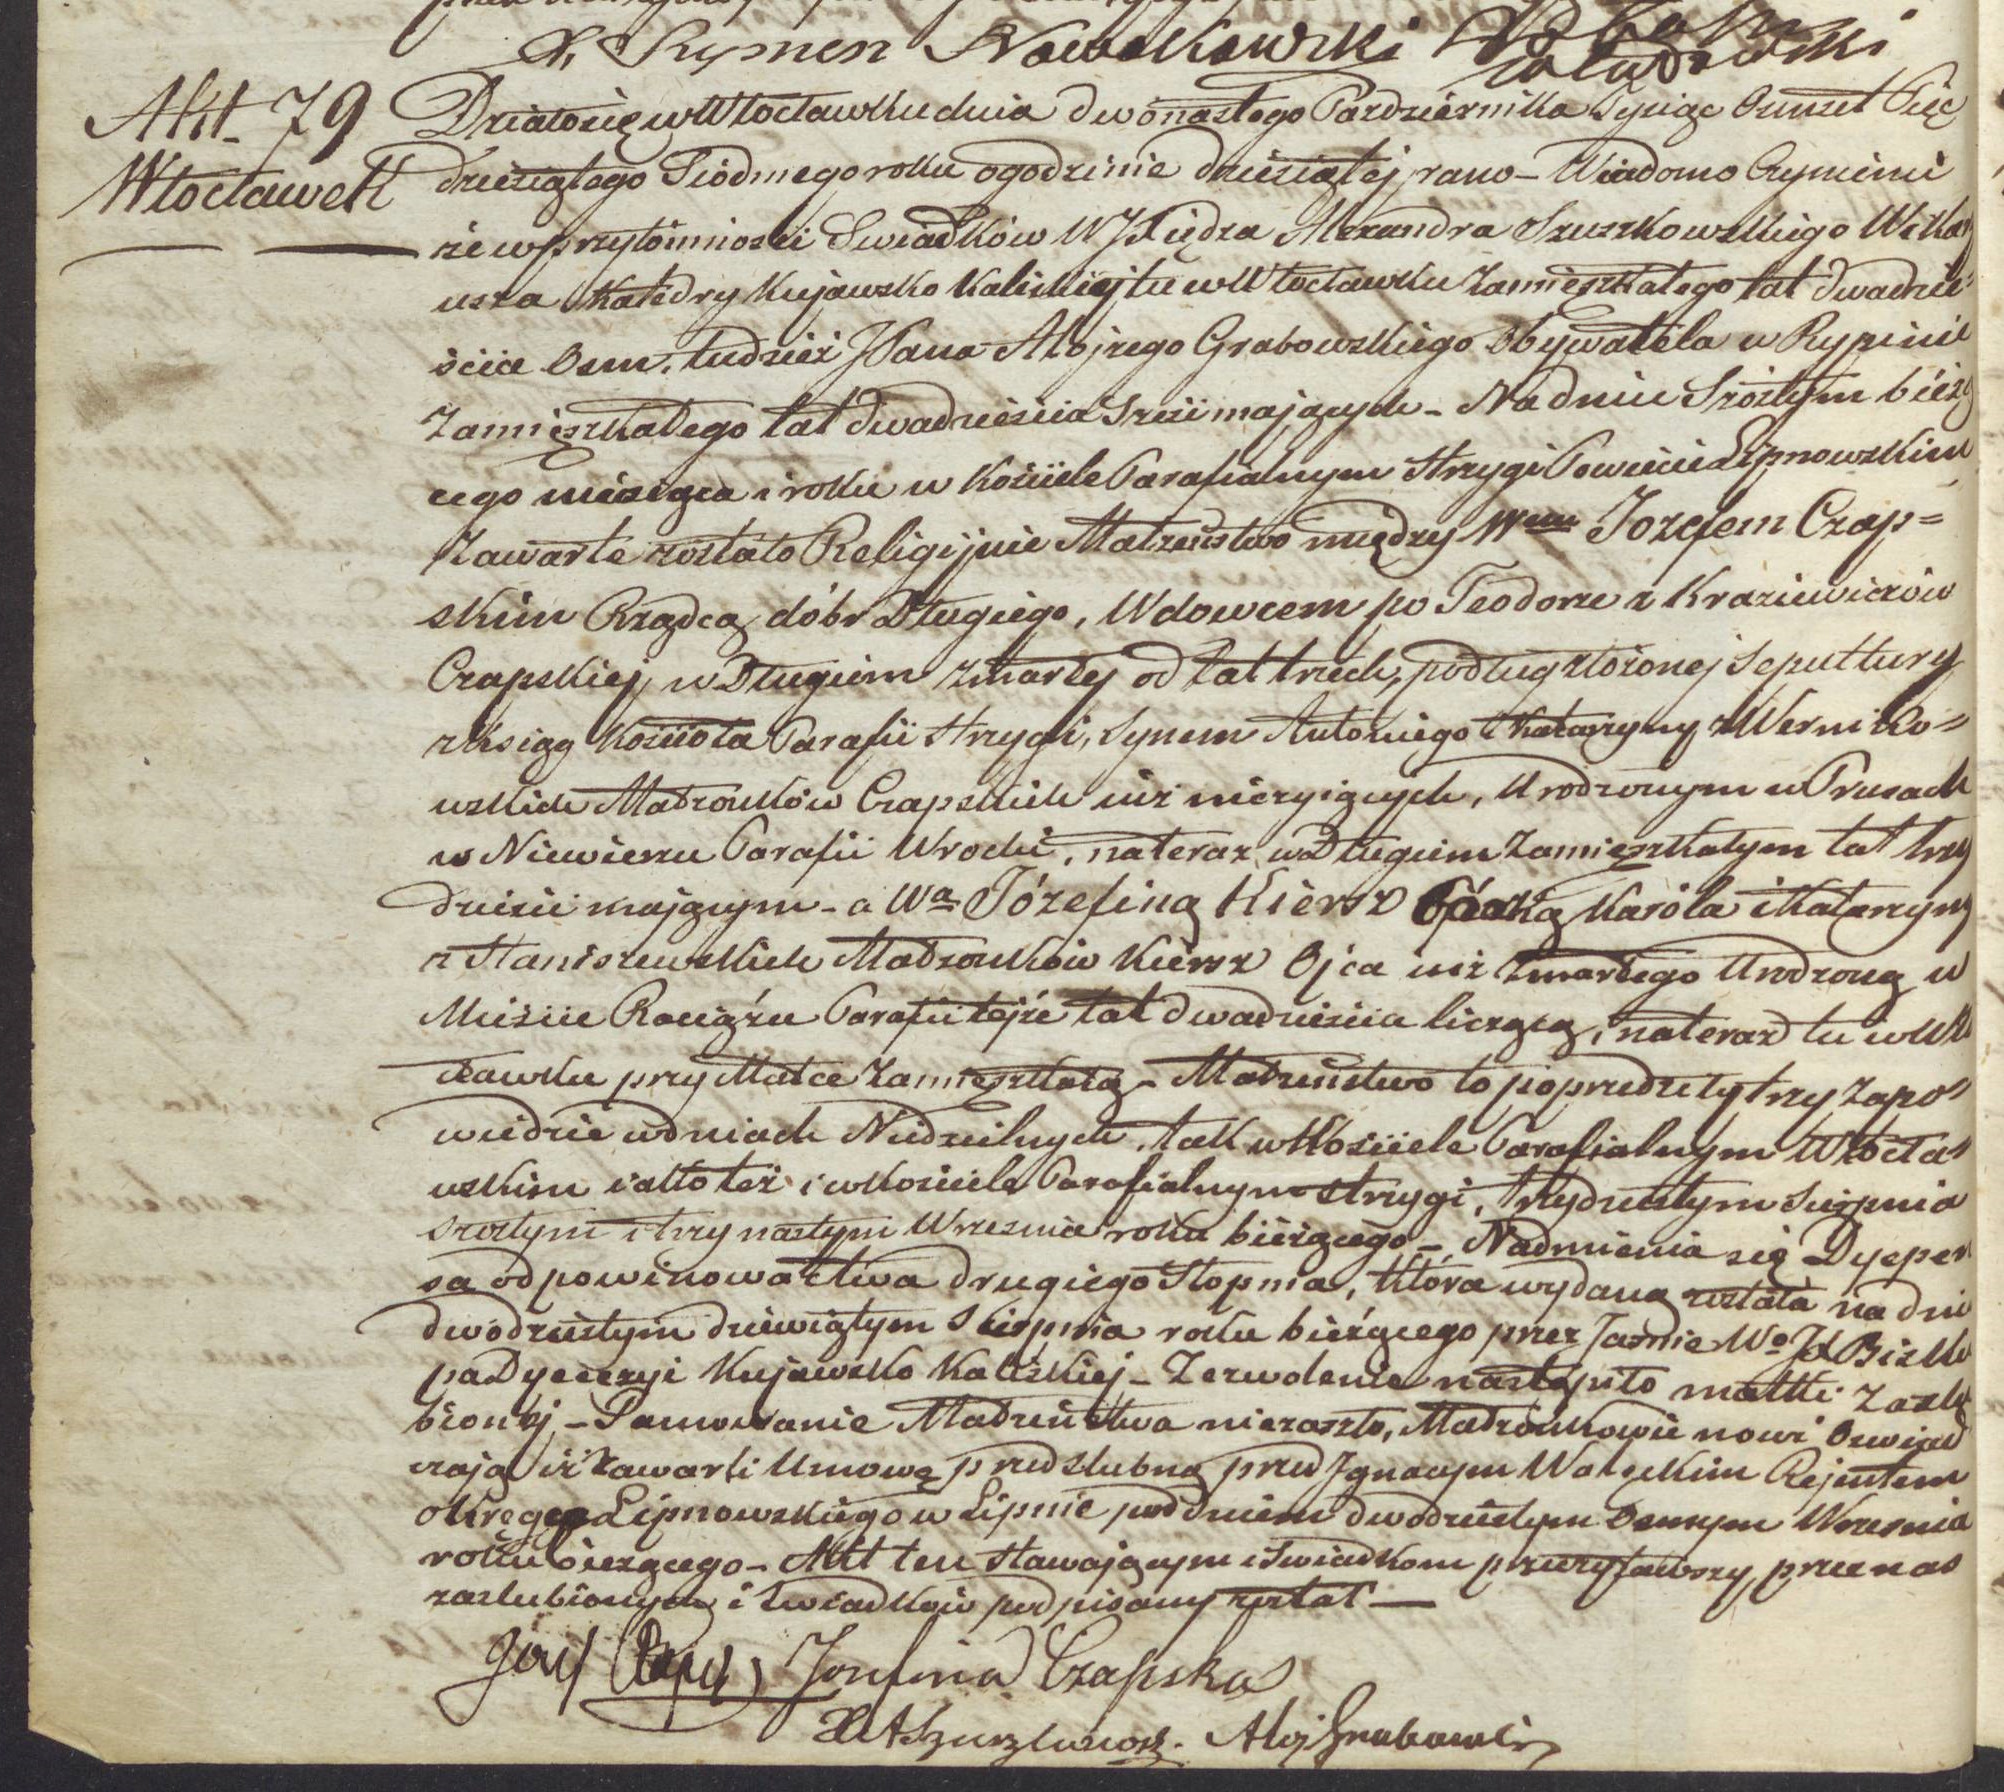 X. Szymon Nowakowski
Akt. 79
Włocławek
Działo się w Włocławku dnia dwónastego Pazdziernika Tysiąc Osmset Pięć
dziesiątego Siódmego roku o godzinie dziesiątej rano – Wiadomo Czynimi
że w przytomnosci Swiadków WJXiędza Alexandra Szuszkowskiego Wikar
usza Katedry Kujawsko Kaliskiej tu w Włocławku zamięszkałego lat dwadzie=
ścia Osm, tudzież JPana Alojzego Grabowskiego Obywatela w Rypinie
zamięszkałego lat dwadzieścia trzii mających – Na dniu Szóstym bieżą
cego miesiąca i roku w Kościele Parafialnym Strzygi Powiecie Lipnowskim
zawarte zostało Religijnie Małżeństwo między Wym Jozefem Czap=
skim Rządcą dóbr Długiego, Wdowcem po Teodorze z Kraziewiczów
Czapskiej, w Długiem zmarłey od lat trzech, podług złożonej Sepultury
z ksiąg Kościoła Parafii Strzygi, Synem Antoniego i Katarzyny z Werniko=
wskich Małżonków Czapskich iuż nieżyiących, Urodzonym w Prusach
w Niewierzu Parafii Wrocki, na teraz w Długiem zamięszkałym lat trzy
dzieści mającym – a Wą Józefiną Kiersz Córką Karóla i Katarzyny
z Staniszewskich Małżonków Kiersz Ojca iuż zmarłego Urodzoną w
Mieście Raciążu Parafii tejże lat dwadzieścia liczącą, na teraz tu w Wło
cławku przy Matce zamięszkałą – Małżeństwo to poprzedziły trzy zapo=
wiedzie w dniach Niedzielnych, tak w Kościele Parafialnym Włocła=
wskim iako też i w kościele Parafialnym Strzygi, trzydziestym Sierpnia
szóstym i trzynastym Wrzesnia roku bieżącego – Nadmienia się Dyspen
sa od powinowactwa drugiego Stopnia, która wydaną została na dniu
dwódziestym dziewiątym Sierpnia roku bieżącego przez Jaśnie Wo JX Bisku
pa Dyecezyi Kujawsko Kaliskiej – Zezwolenie nastąpiło matki zaślu
bionej – Tamowanie Małżeństwa nie zaszło, Małżonkowie nowi Oswiad
czają iż zawarli Umowę przedslubną przed Ignacym Wałęckim Rejentem
Okręgu Lipnowskiego w Lipnie pod dniem dwódziestym Osmym Wrzesnia
roku bieżącego – Akt ten stawającym i Swiadkom przeczytawszy, przez nas
zaslubionych i Swiadków podpisany został –
Józef Czapski Jozefina Czapska
X A Szuszkowski. Aloj Grabowski